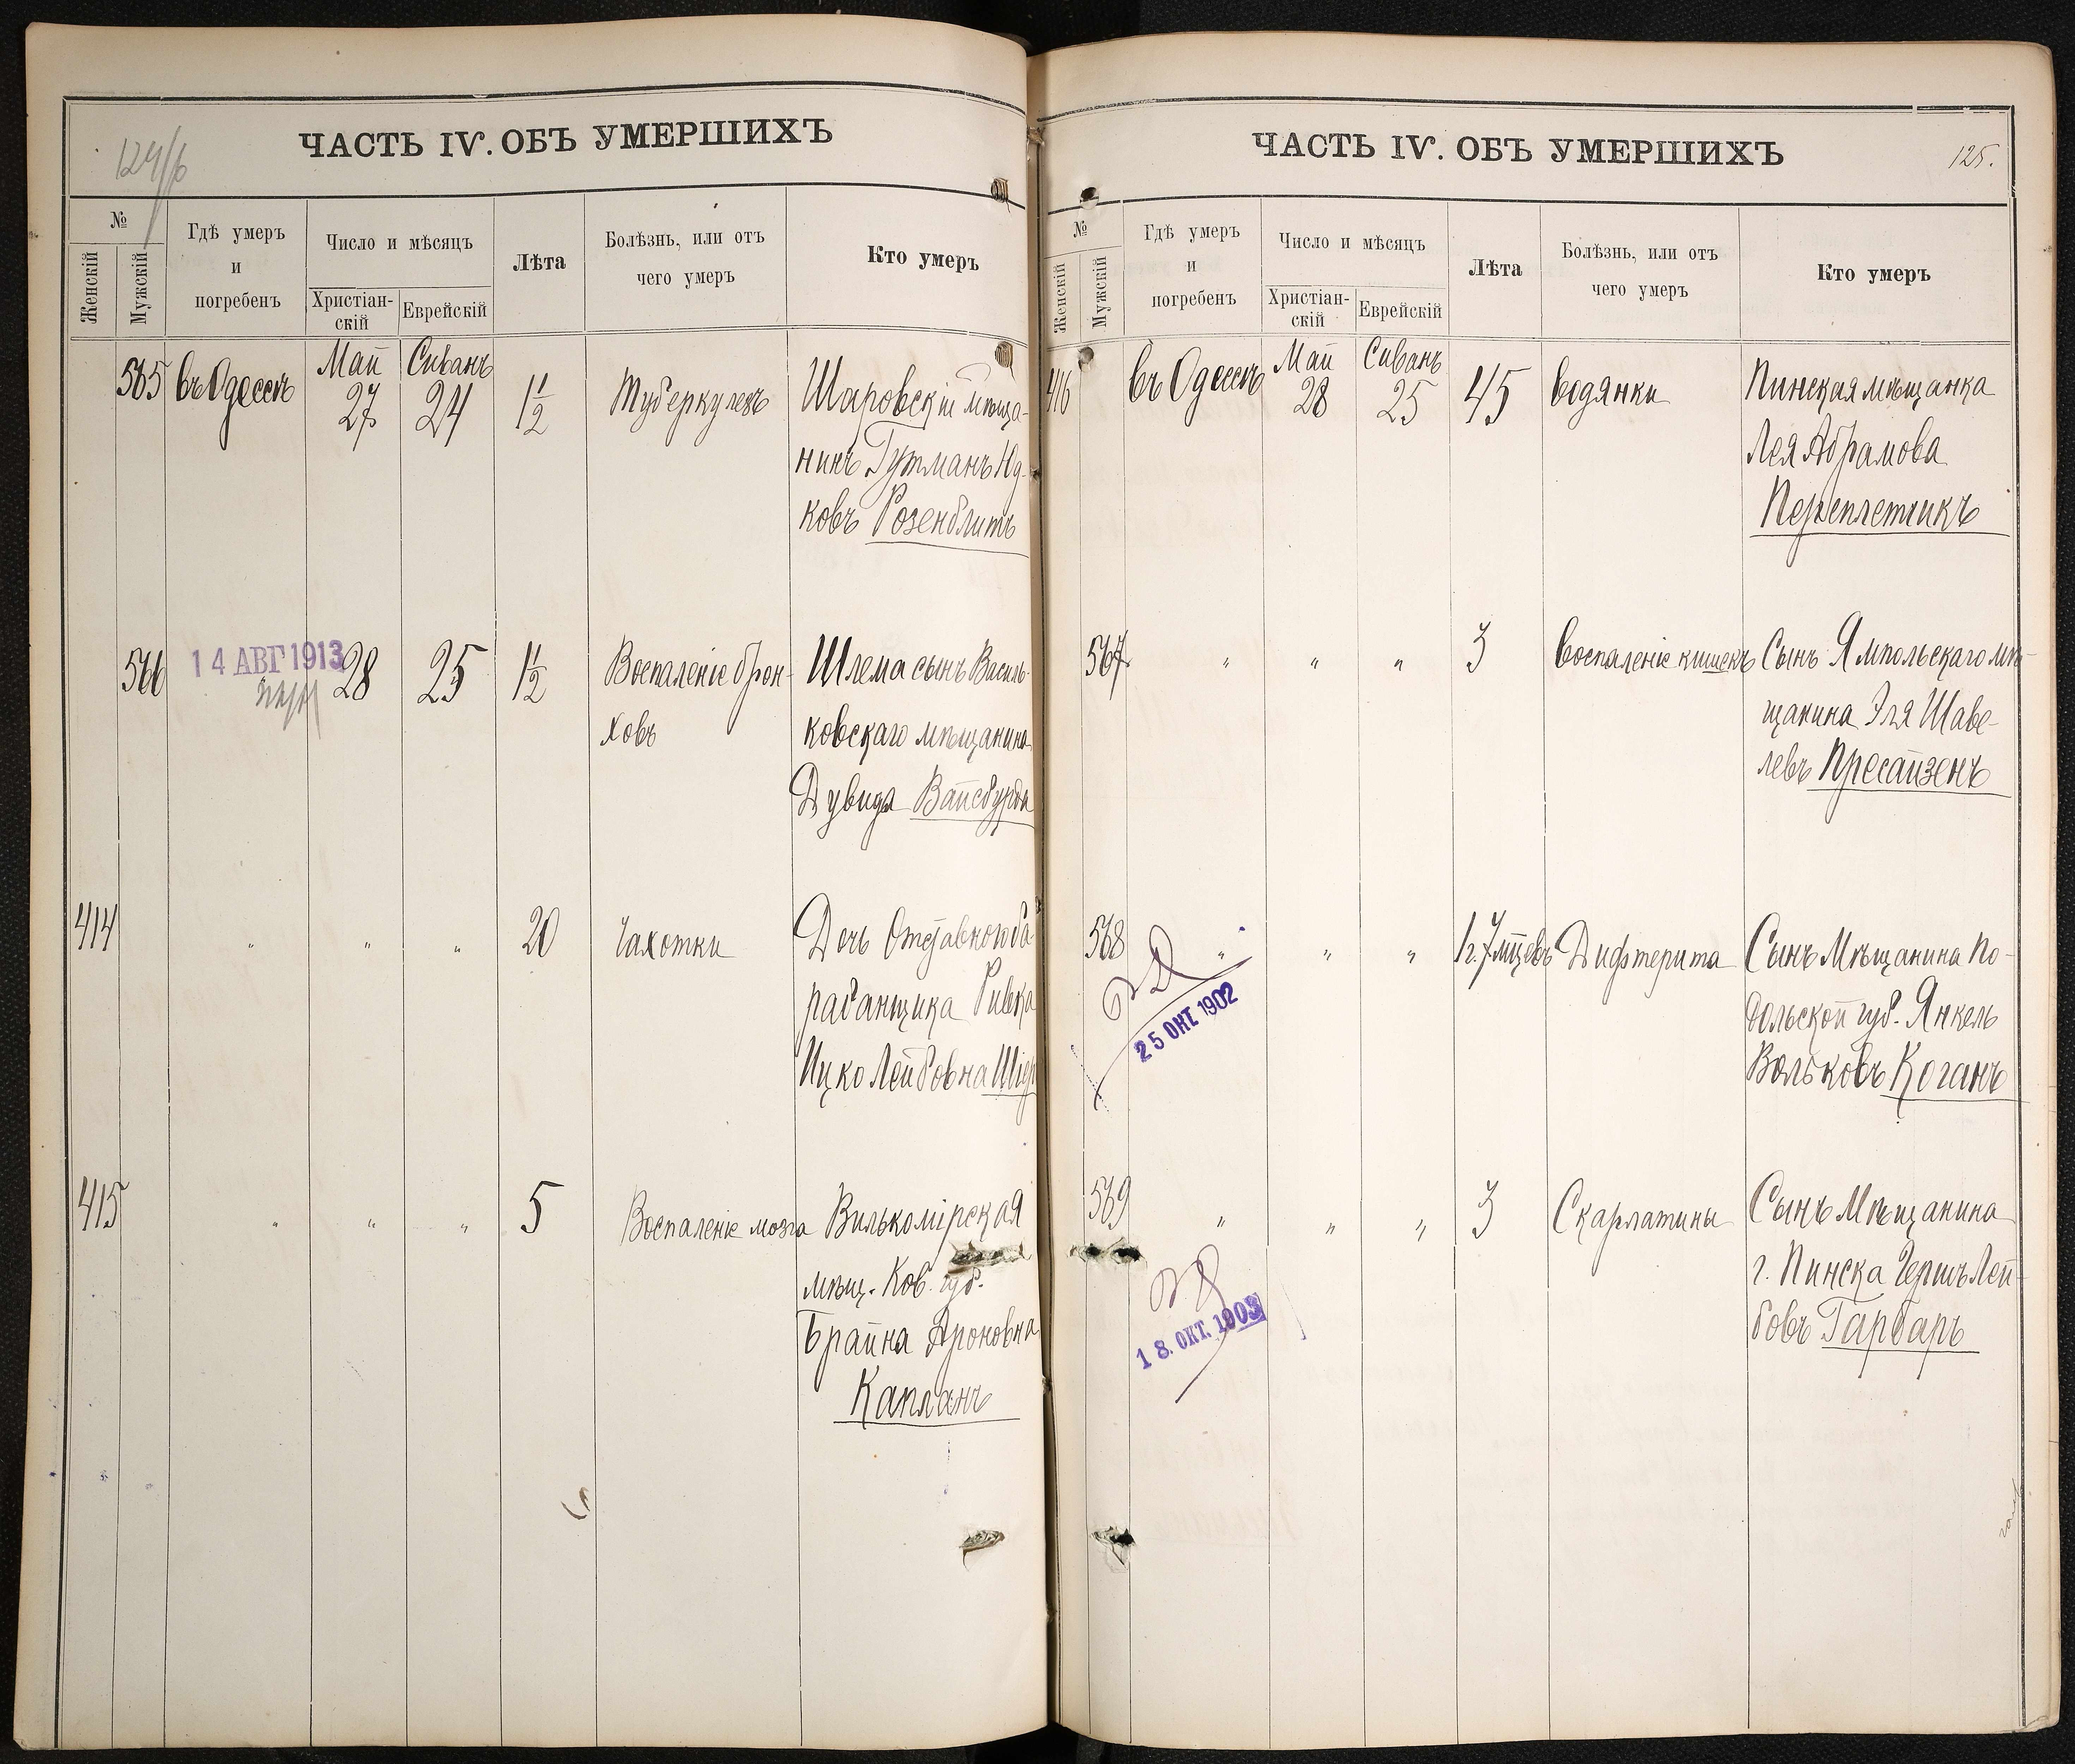 124/б
ЧАСТЬ IV. ОБЪ УМЕРШИХЪ
№
Женскій
Мужскій
Гдѣ умеръ
и
погребенъ
Число и мѣсяцъ
Христіан-
скій
Еврейскій
Лѣта
Болѣзнь, или отъ
чего умеръ
Кто умеръ
565 въ Одессѣ Май 27 Сиванъ 24 1 1/2 Туберкулезъ Шаровскій мѣща-
нинъ Гутманъ Юд-
ковъ Розенблитъ
566 14 АВГ 1913 28 25 1 1/2 Воспаленіе брон- Шлема сынъ Василь-
ховъ ковскаго мѣщанина
Дувида Вайсбурда
414 " " " 20 Чахотки Дочь Отставного ба-
рабанщика Ривка
Ицко Лейбовна
415 " " " 5 Воспаленіе мозга Вилькомірская
мѣщ. Ков. губ.
Брайна Ароновна
Капланъ
ЧАСТЬ IV. ОБЪ УМЕРШИХЪ
125.
№
Женскій
Мужскій
Гдѣ умеръ
и
погребенъ
Число и мѣсяцъ
Христіан-
скій
Еврейскій
Лѣта
Болѣзнь, или отъ
чего умеръ
Кто умеръ
416 въ Одессѣ Май 28 Сиванъ 25 45 водянки Пинская мѣщанка
Лея Абрамова
Переплетчикъ
567 " " " 3 Воспаленіе кишекъ Сынъ Ямпольскаго мѣ-
щанина Эля Шаве-
левъ Пресайзенъ
568 " " " 1 г. 7 мѣцевъ Дифтерита Сынъ Мѣщанина По-
дольской губ. Янкель
Вольковъ Коганъ
25 ОКТ 1902
569 " " " 3 Скарлатины Сынъ Мѣщанина
г. Пинска Гершъ Лей-
бовъ Гарбаръ
18. ОКТ. 1903